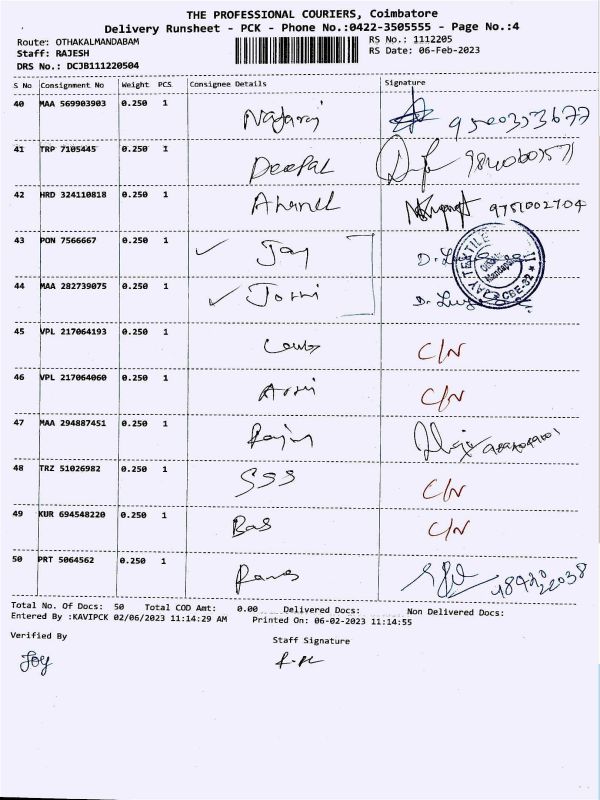 THE PROFESSIONAL COURIERS, Coimbatore
Delivery Runsheet - PCK - Phone No.:0422-3505555 - Page No.:4
Route: OTHAKALMANDABAM RS No.: 1112205
Staff: RAJESH RS Date: 06-Feb-2023
DRS No.: DCJB111220504
S No Consignment No Weight PCS Consignee Details Signature
40 MAA 569903903 0.250 1 Nagaraj 9500353677
41 TRP 7105445 0.250 1 Deepal
42 HRD 324110818 0.250 1 Anand 9751002704
43 PON 7566667 0.250 1 ✓ Jay
44 MAA 282739075 0.250 1 ✓ Joshi
JAY TEXTILE CBE-32
45 VPL 217064193 0.250 1 C/N
46 VPL 217064060 0.250 1 C/N
47 MAA 294887451 0.250 1
48 TRZ 51026982 0.250 1 SSS C/N
49 KUR 694548220 0.250 1 Bas C/N
50 PRT 5064562 0.250 1
Total No. Of Docs: 50 Total COD Amt: 0.00 Delivered Docs: Non Delivered Docs:
Entered By :KAVIPCK 02/06/2023 11:14:29 AM Printed On: 06-02-2023 11:14:55
Verified By Staff Signature
Joy